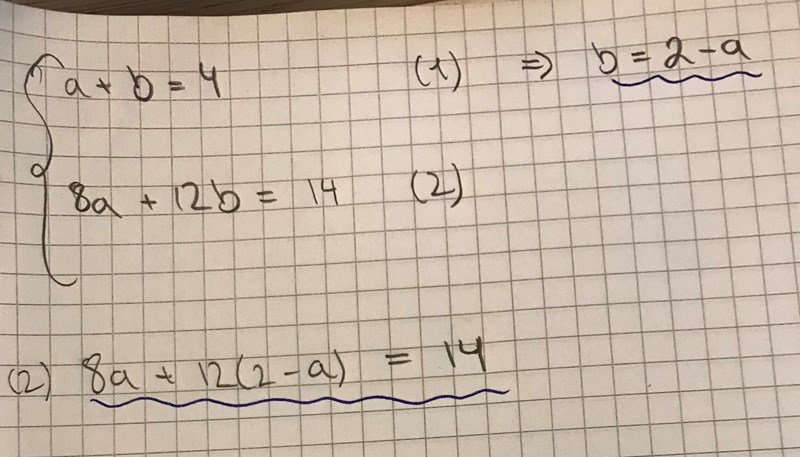 a + b = 4 (1) ⇒ b = 2 - a
8a + 12b = 14 (2)
(2) 8a + 12(2 - a) = 14